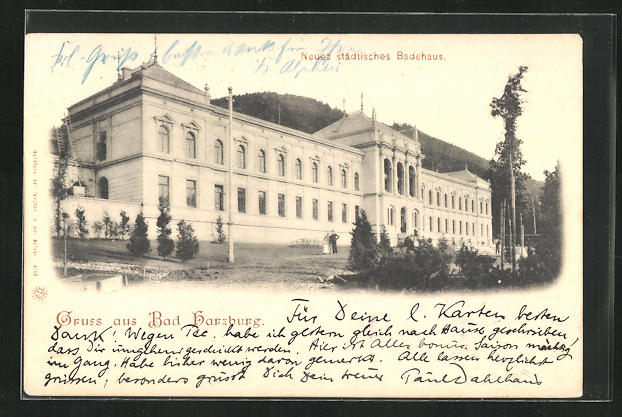 frl. Gruß u. besten Dank für Ihre
Neues städtisches Badehaus.
Gruss aus Bad Harzburg.
Für Deine l. Karten besten
Dank. Wegen habe ich gestern gleich nach Hause geschrieben
dass Dir umgehend geschickt werden. Hier ist Alles Saison mächtig
im Gang. Habe bisher wenig davon gemerkt. Alle lassen herzlichst
grüssen, besonders grüsst Dich Dein treuer Paul Dahlhaus